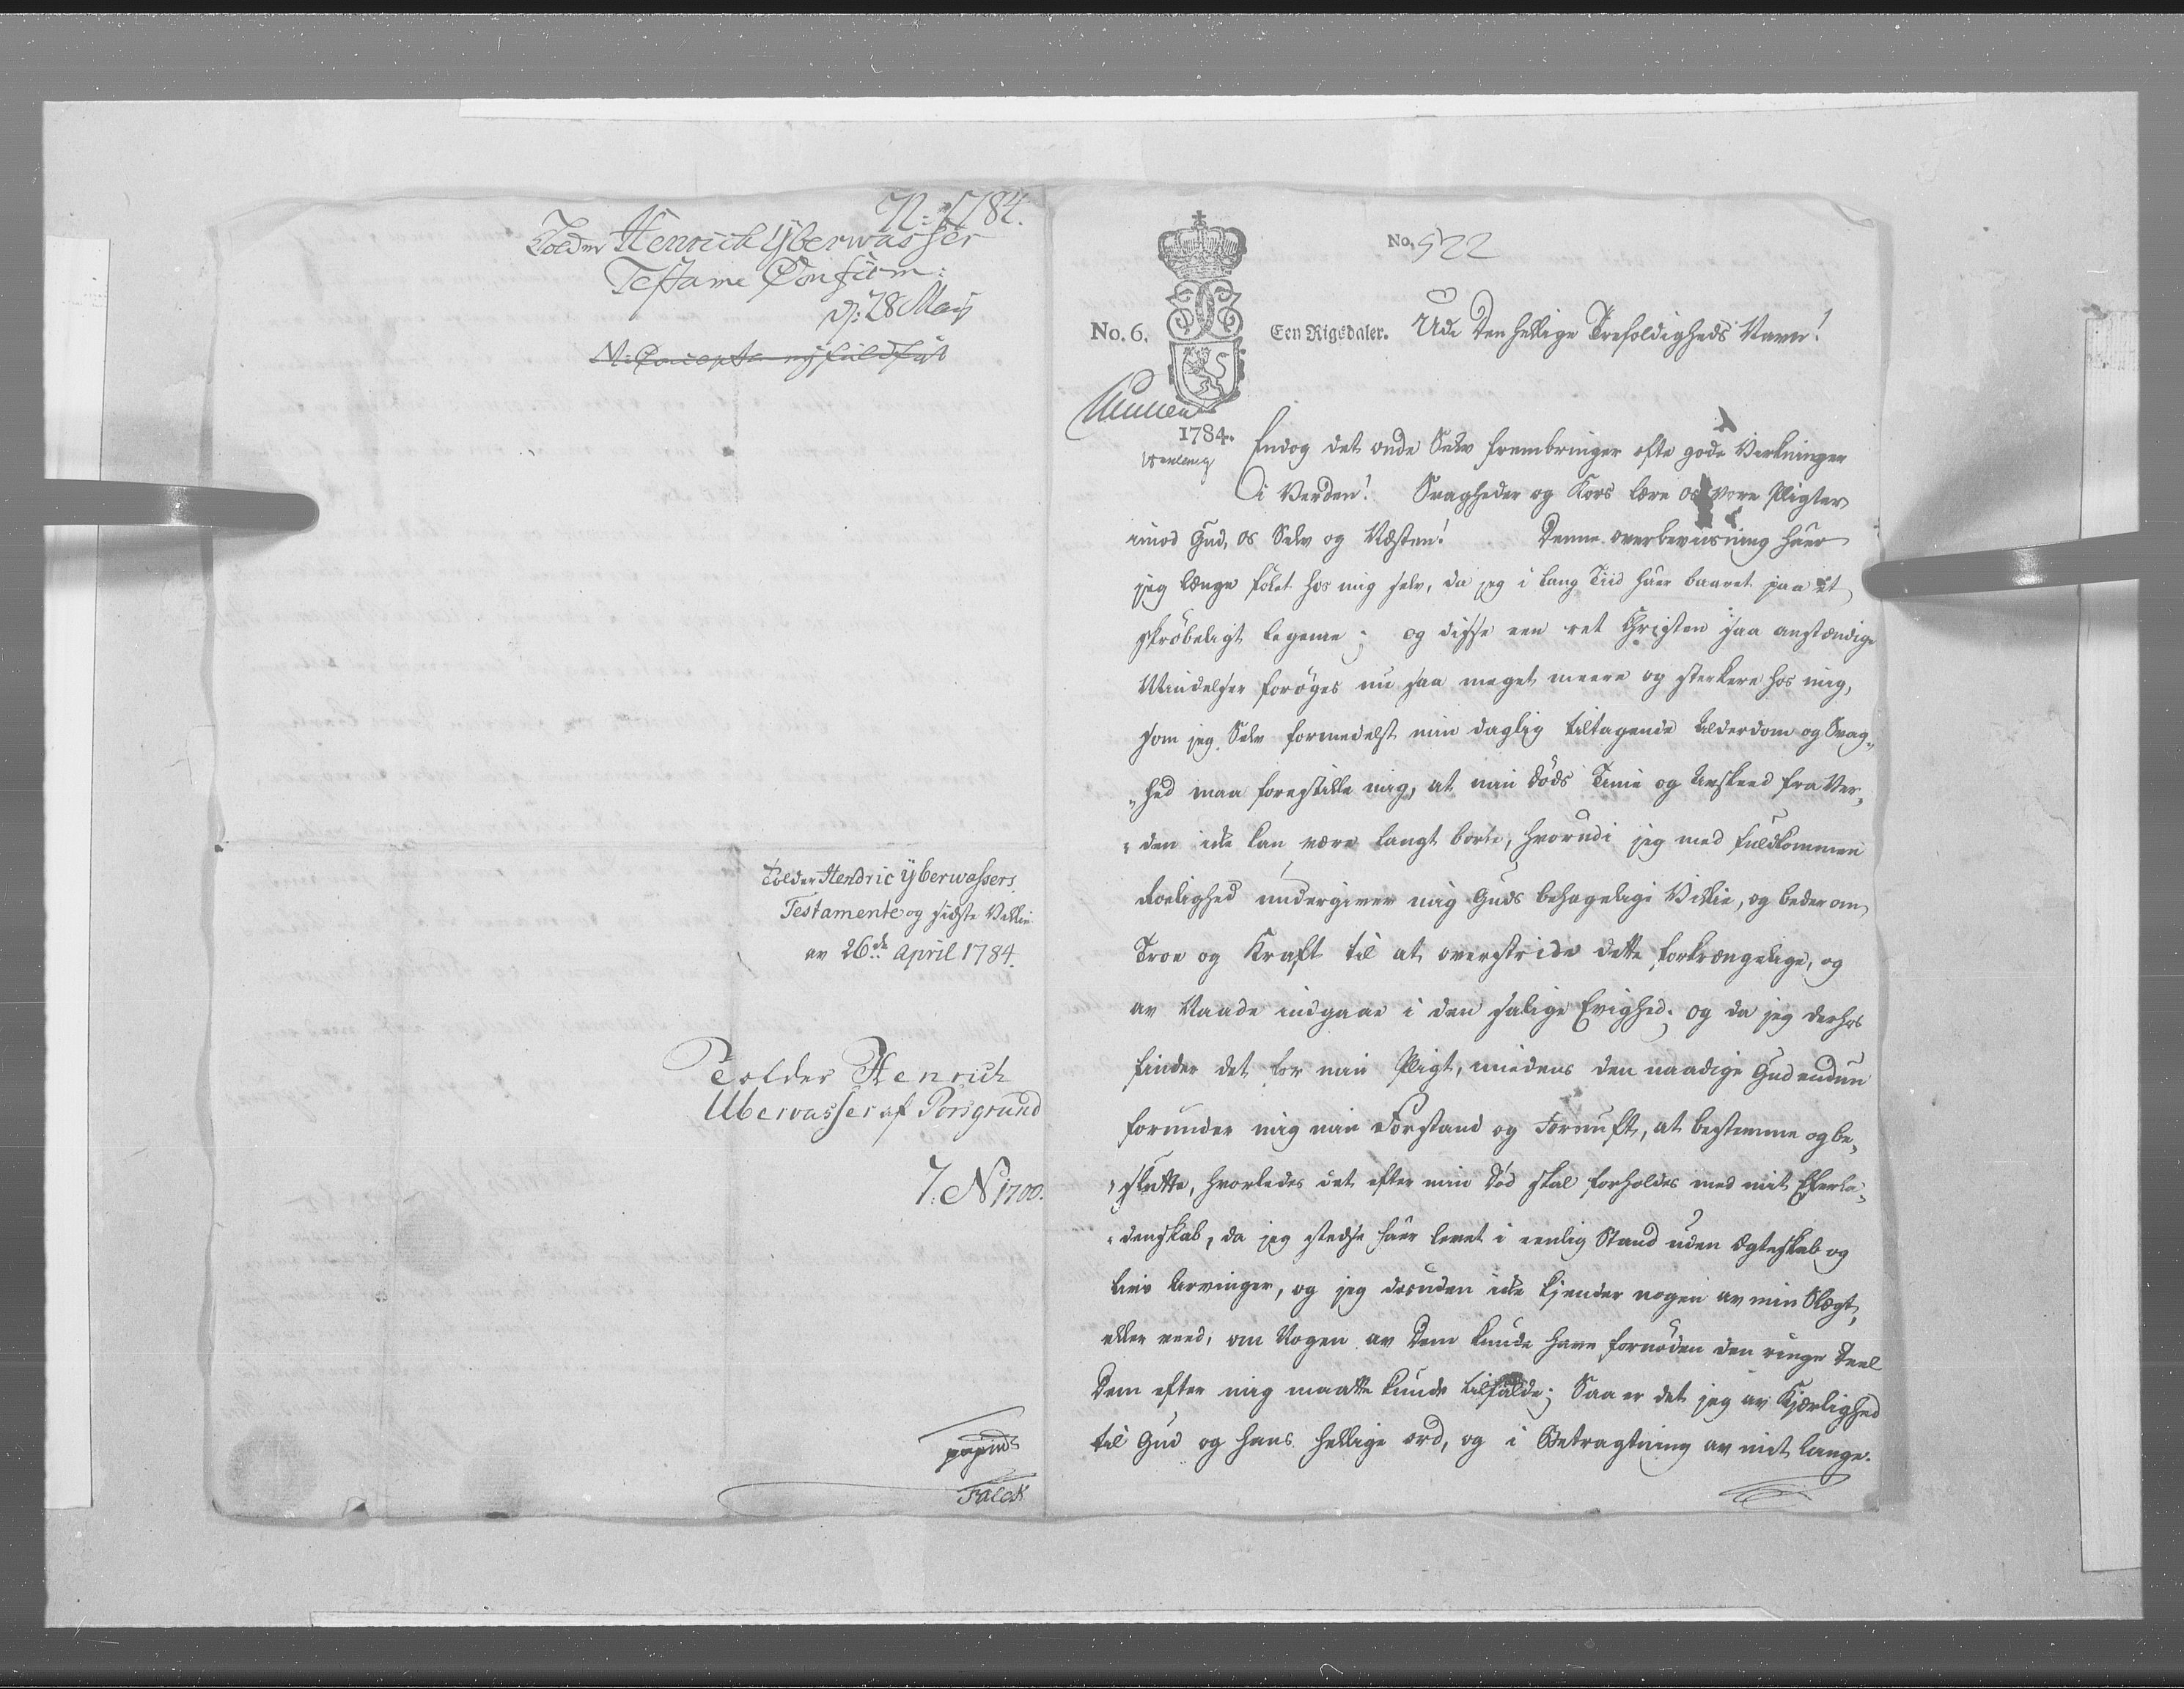 N: 1784.
Tolder Henrich Yberwasser
Testame Confirm:
D: 28 Maij
Tolder Hendric Yberwassers
Testamente og sidste Villie
av 26de April 1784.
Tolder Henrich
Ubervasser af Porsgrund
7. N 1700.
Falck
No. 522
No. 6.
Een Rigsdaler.
1784.
Udi Den hellige Trefoldigheds Navn!
Endog det onde Selv frembringer ofte gode Virkninger
i Verden! Svagheder og Kors lære os vore Pligter
imod Gud, os Selv og Næsten! Denne overbeviisning haver
jeg længe følet hos mig selv, da jeg i lang Tiid haver baaret paa et
skrøbeligt legeme; og disse een ret Christen saa anstændige
Mindelser forøges nu saa meget meere og sterkere hos mig,
som jeg Selv formedelst min daglig tiltagende Alderdom og Svag„
„hed maa forestille mig, at min døds Time og Avskeed fra Ver„
„den ikke kan være langt borte, hvorudi jeg med fuldkommen
Roelighed undergiver mig Guds behagelige Villie, og beder om
Troe og Kraft til at overstride dette forkrængelige, og
av Naade indgaae i den salige Evighed; og da jeg derhos
finder det for min Pligt, imedens den naadige Gud endnu
forunder mig min Forstand og Fornuft, at bestemme og be„
„slutte, hvorledes det efter min Død skal forholdes med mit Efterla„
„denskab, da jeg stedse haver levet i eenlig Stand uden Ægteskab og
Livs Arvinger, og jeg desuden ikke kjender nogen av min Slægt,
eller veed, om Nogen av Dem kunde have fornøden den ringe Deel
Dem efter mig maatte kunde tilfalde; Saa er det jeg av Kjærlighed
til Gud og hans hellige ord, og i Betragtning av mit lange